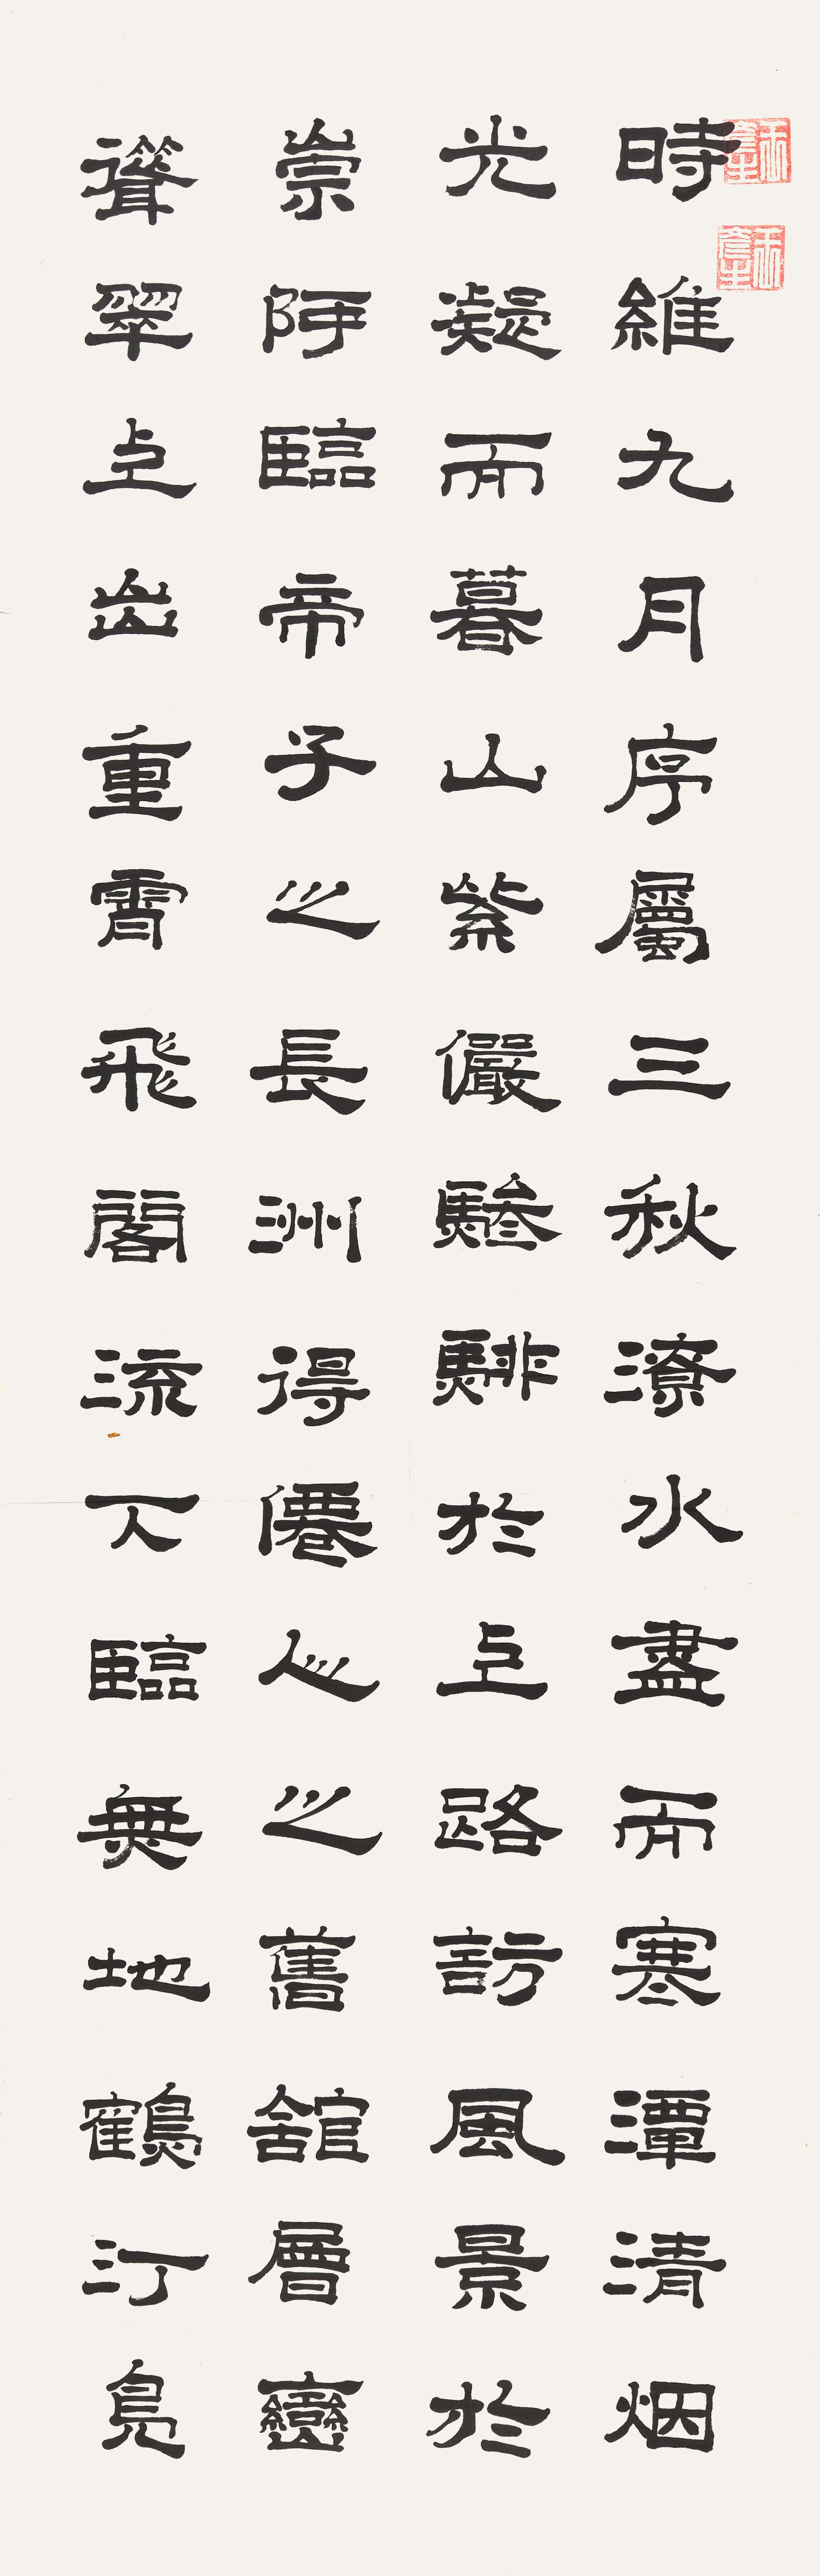 時維九月序屬三秋潦水盡而寒潭清烟
光凝而暮山紫儼驂騑於上路訪風景於
崇阿臨帝子之長洲得僊人之舊舘層巒
聳翠上出重霄飛閣流下臨無地鶴汀鳧